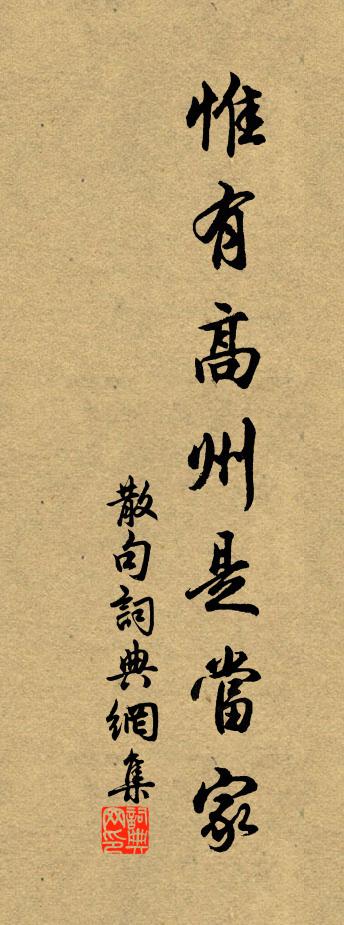 惟有高州是當家
散句詞典網集
詞典網印